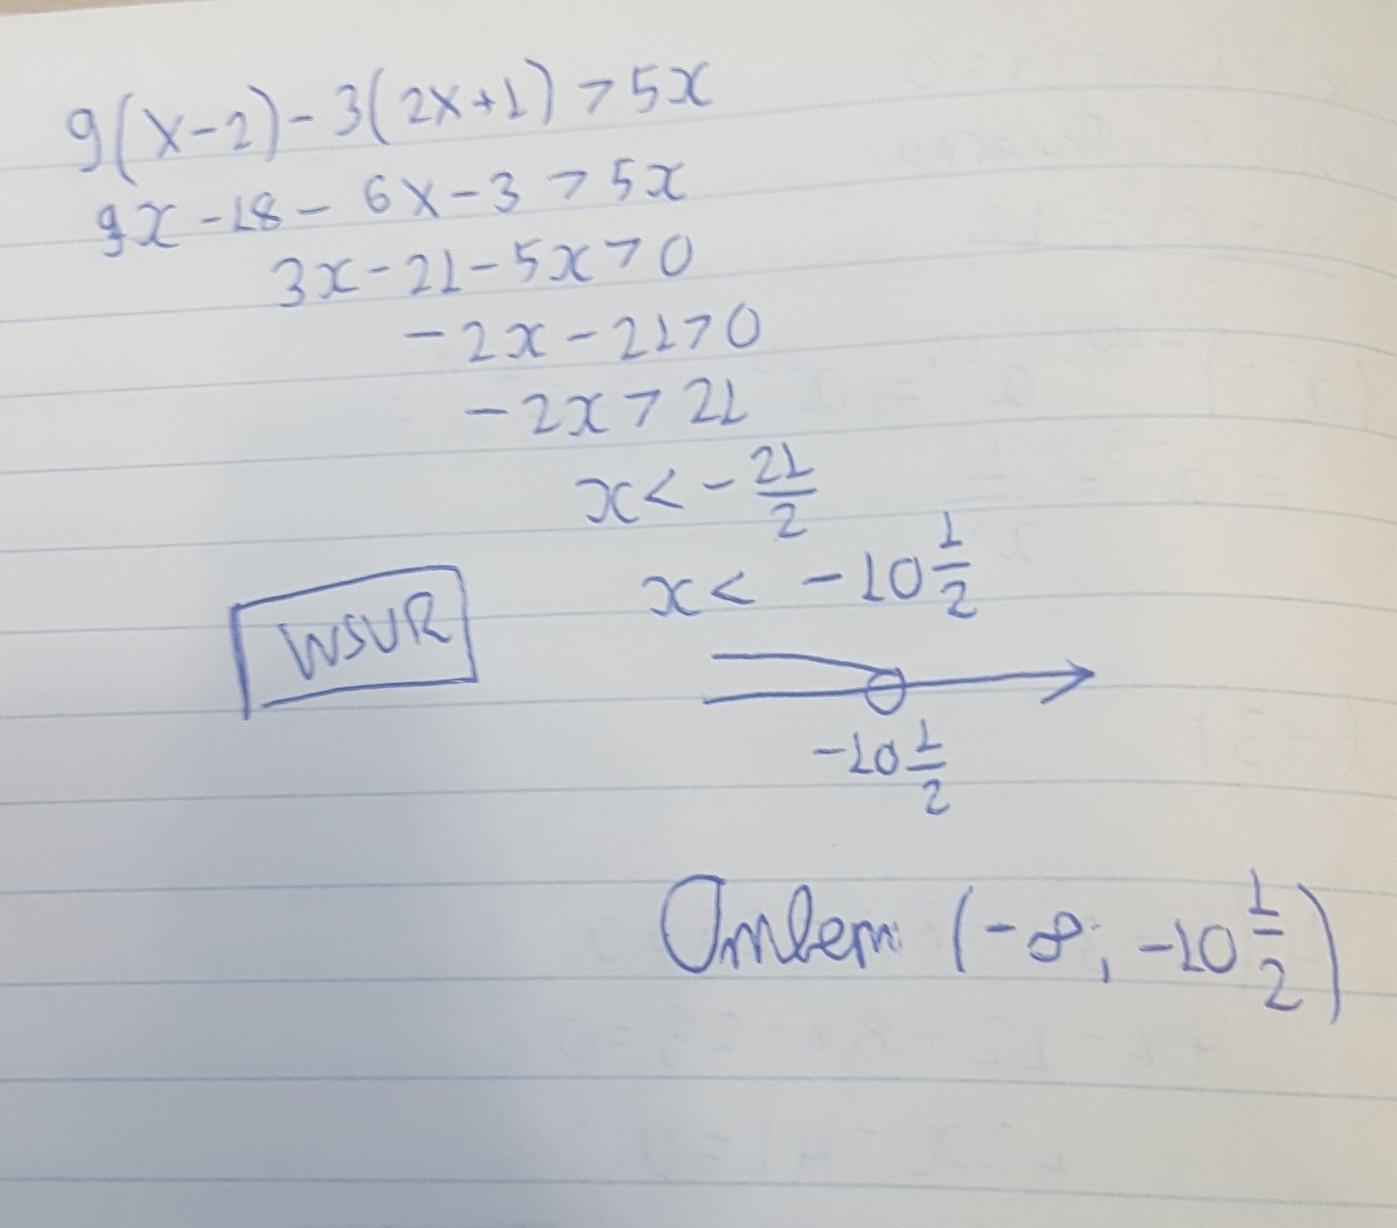 9(x-2)-3(2x+1)>5x
9x-18-6x-3>5x
3x-21-5x>0
-2x-21>0
-2x>21
x<-21/2
x< -10 1/2
WSUR
-10 1/2
Ответ: (-∞; -10 1/2)